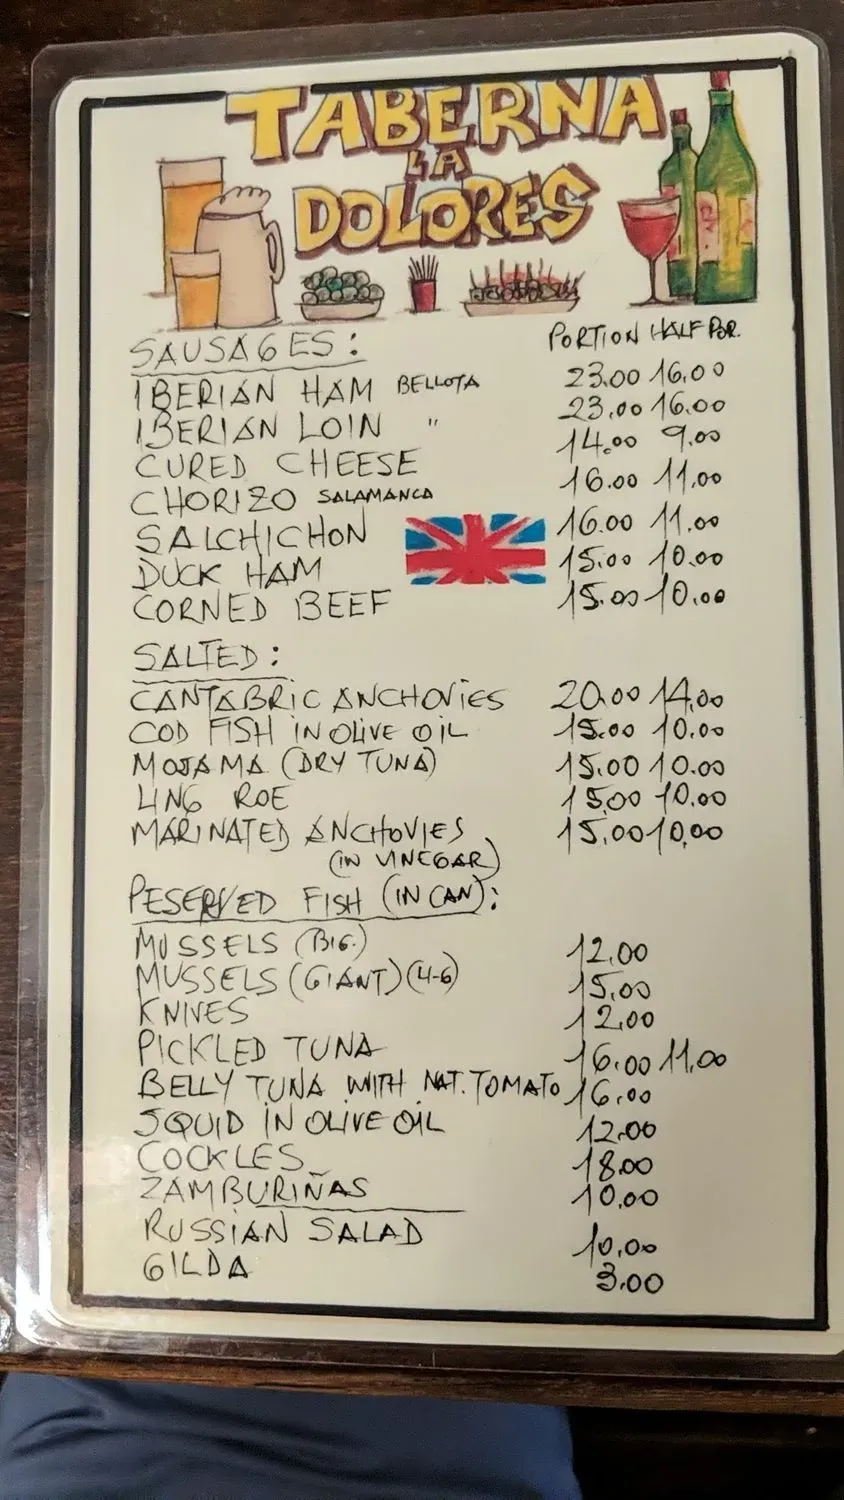 TABERNA
LA
DOLORES
PORTION HALF POR.
SAUSAGES:
IBERIAN HAM BELLOTA 23.00 16,00
IBERIAN LOIN " 23,00 16.00
CURED CHEESE 14.00 9.00
CHORIZO SALAMANCA 16.00 11.00
SALCHICHON 16.00 11.00
DUCK HAM 15.00 10.00
CORNED BEEF 15.00 10.00
SALTED:
CANTABRIC ANCHOVIES 20.00 14,00
COD FISH IN OLIVE OIL 15.00 10.00
MOJAMA (DRY TUNA) 15.00 10.00
LING ROE 15,00 10.00
MARINATED ANCHOVIES 15,00 10,00
(IN VINEGAR)
PESERVED FISH (IN CAN):
MUSSELS (BIG.) 12.00
MUSSELS (GIANT) (4-6) 15,00
KNIVES 12.00
PICKLED TUNA 16.00 11.00
BELLY TUNA WITH NAT. TOMATO 16.00
SQUID IN OLIVE OIL 12.00
COCKLES 18.00
ZAMBURIÑAS 10.00
RUSSIAN SALAD 10,00
GILDA 3.00